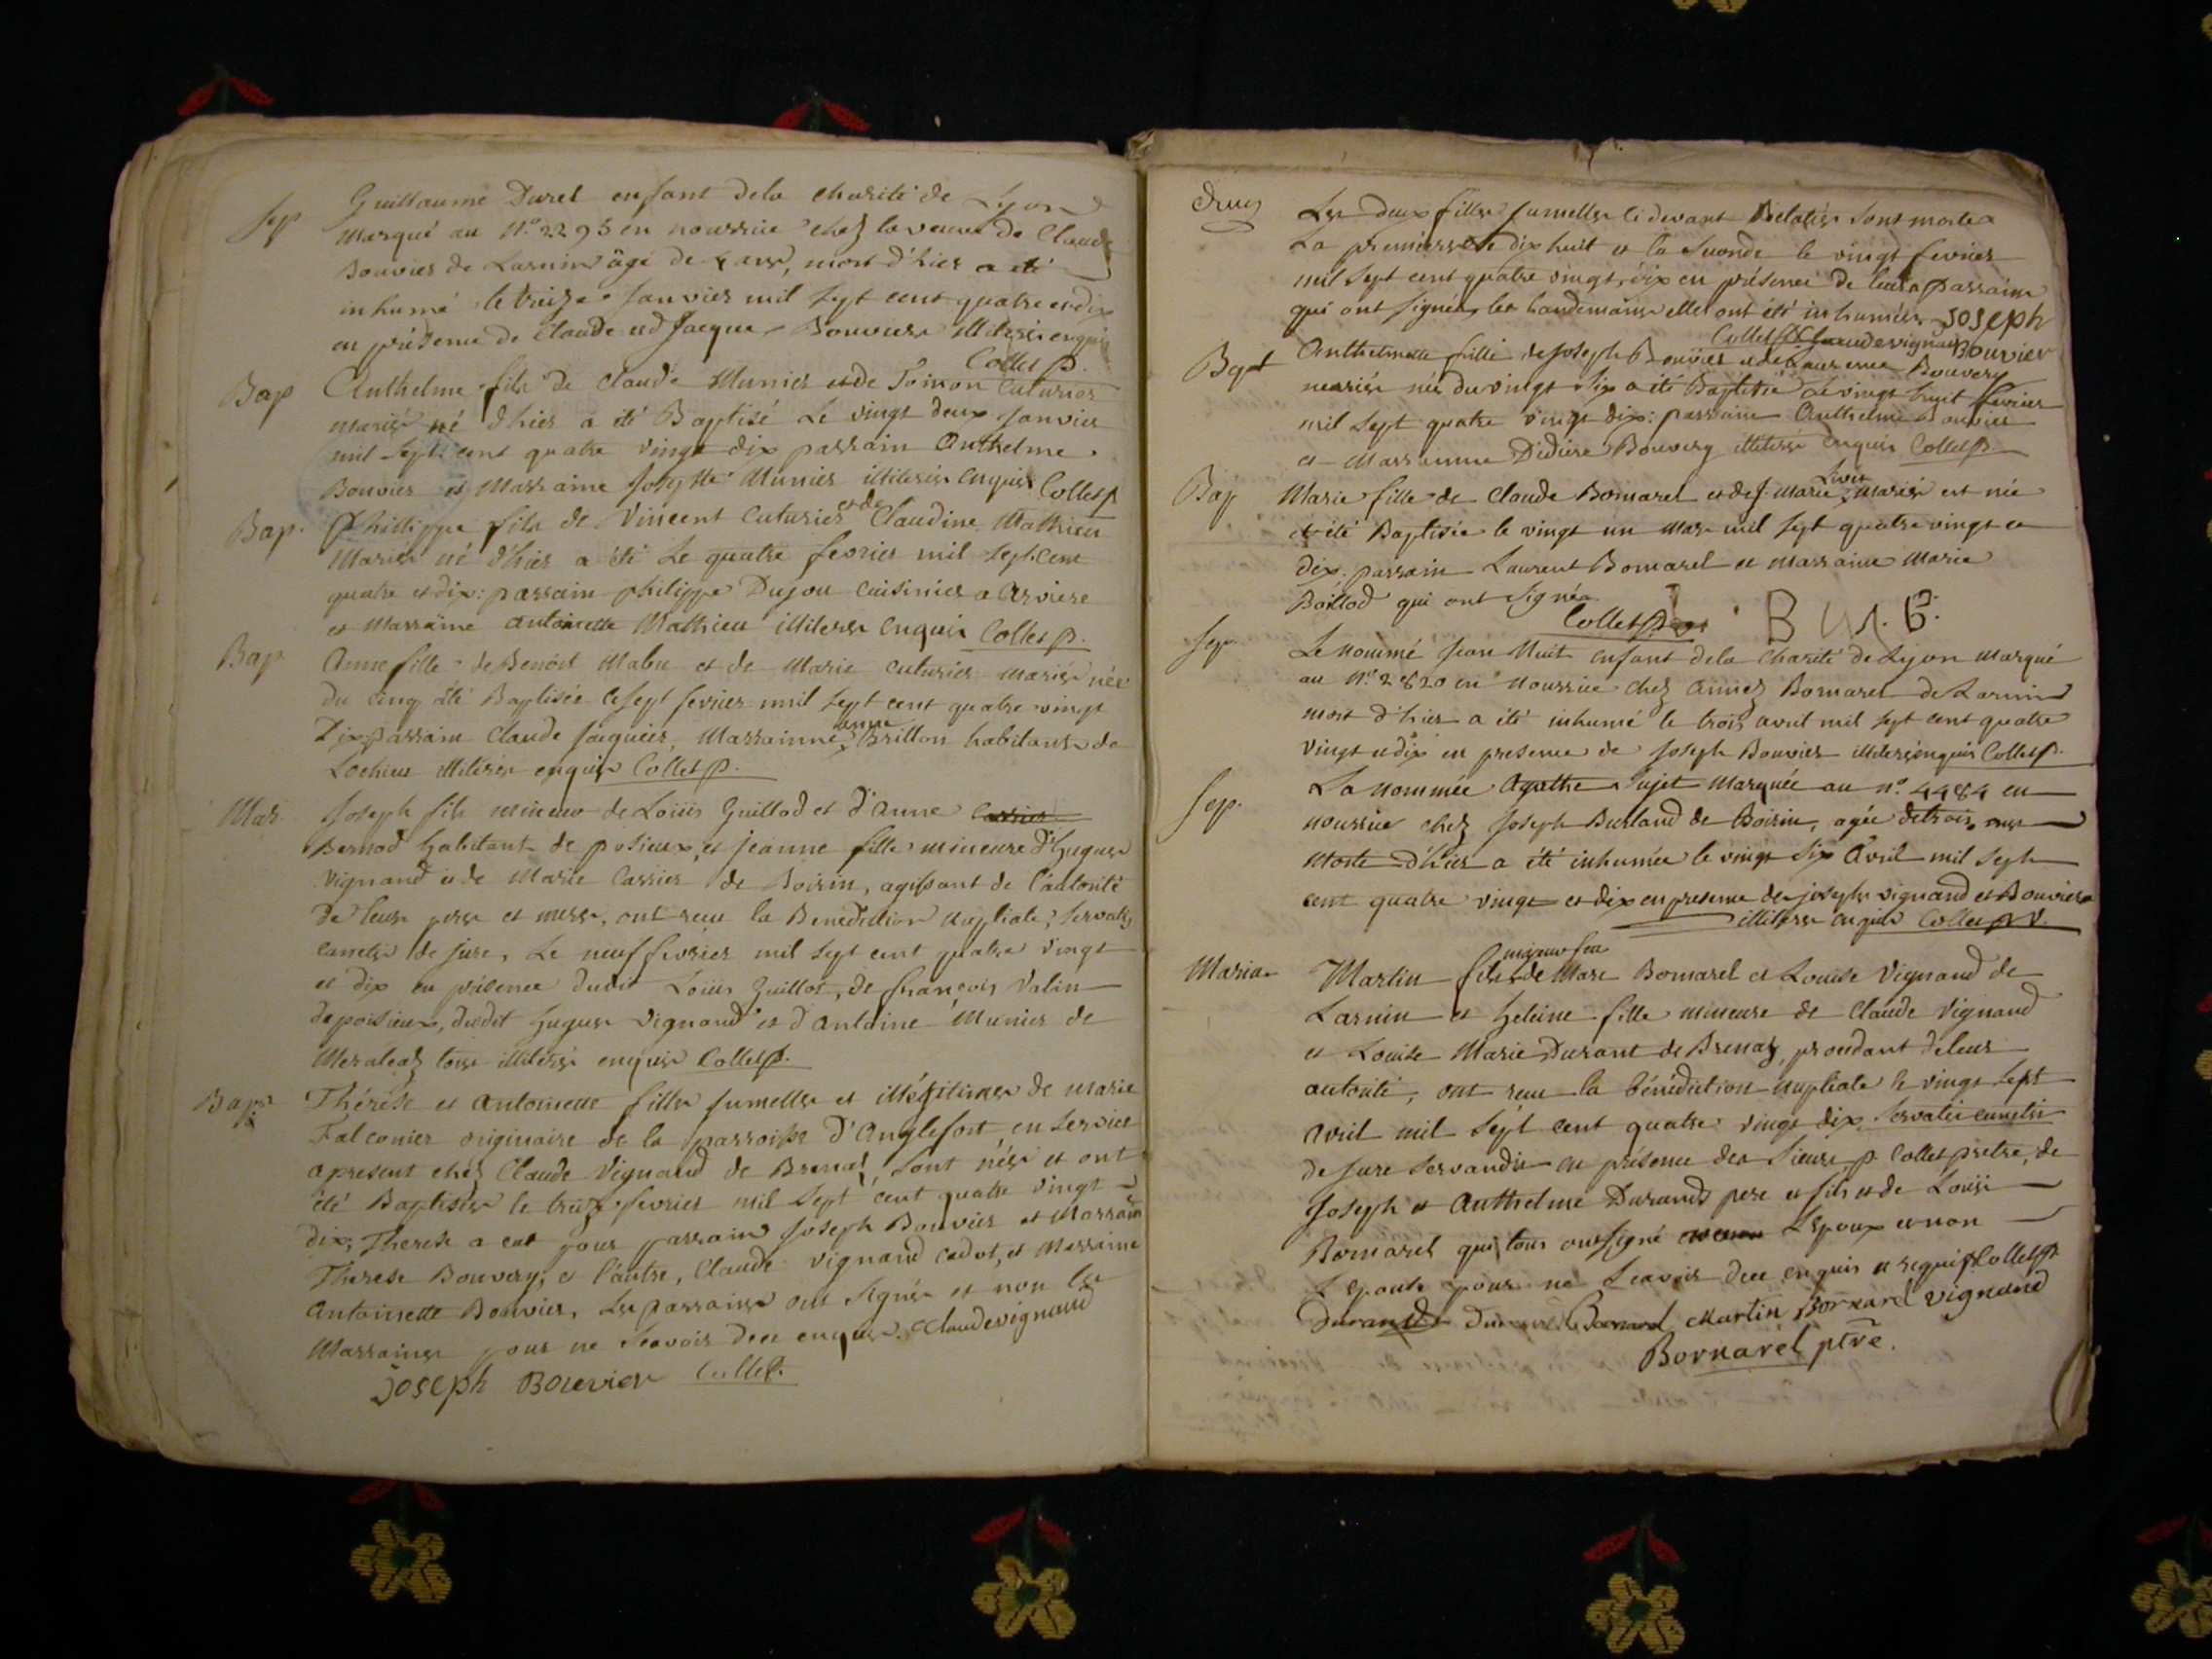 Sep Guillaume Duret enfant dela charité de Lyon
Marqué au N.º 2293 en nourrice chez la veuve de Claude
Bouvier de Larnin âgé de ans, mort d'hier a été
inhumé le treize Janvier mil sept cent quatre et dix
en présence de Claude et d Jacque Bouvier illiterés enquis
Collet p.
Bap Anthelme fils de Claude Munier et de Toinon Cuturier
mariés né d'hier a été Baptisé Le vingt deux Janvier
mil sept cent quatre vingt dix parrain Anthelme
Bouvier et Marraine Josephte Munier illiterés enquis Collet p
Bap. Phillippe fils de Vincent Cuturier et de Claudine Mathieu
Mariés né d'hier a été Le quatre fevrier mil sept cent
quatre et dix : parrain philippe Dujou cuisinier a arviere
et Marraine antoinette Mathieu illiterés enquis Collet p.
Bap Anne fille de Benoit Mabu et de Marie Cuturier mariés née
du cinq été Baptisée le sept fevrier mil sept cent quatre vingt
Dix parrain Claude Jaquier, Marrainne anne Brillon habitans de
Lochieu illiterés enquis Collet p.
Mar. Joseph fils mineur de Loüis Guillod et d'Anne
Bernod habitant de posieux, et jeanne fille mineure d'hugues
Vignand et de Marie Carrier de Boirin, agissant de l'autorité
De leurs peres et meres, ont reçu la Benediction nuptiale, servatis
cunctis de jure, Le neuf fevrier mil sept cent quatre vingt
et dix en présence dudit Loüis Guillot, de françois Valin
de poisieux, dudit hugues Vignand et d'antoine Munier de
Meraleaz tous illiterés enquis Collet p.
Bap. Thérèse et antoinette filles jumelles et illégitimes de marie
Falconier originaire de la parroisse d'Anglefort, en service
apresent chez Claude Vignand de Brenaz, sont nées et ont
été Baptisées le treize fevrier mil sept cent quatre vingt
dix, Therese a eut pour parrain Joseph Bouvier et Marraine
Therese Bouvery, et l'autre, Claude Vignand cadot, et Marraine
antoinette Bouvier, Les parrains ont signés et non les
Marraines pour ne Scavoir dece enquis. Claude vignand
Joseph Bouvier Collet p.
Les deux filles jumelles ci devant Relatées sont mortes
La premiere le dix huit et la seconde le vingt fevrier
mil sept cent quatre vingt dix en présence de leurs parrains
qui ont signées les landemains elles ont été inhumées joseph
Collet p. Claude vignand Bouvier
Bapt Anthelmette fille de Joseph Bouvier et de Laurence Bouvery
mariés née du vingt six a été Baptisée Le vingt huit fevrier
mil sept quatre vingt dix : parrain Anthelme Bouvier
et Marrainne Didiere Bouvery illiterés enquis Collet p.
Bap Marie fille de Claude Bornarel et de J. Marie Livet mariés est née
et été Baptisée le vingt un Mars mil sept quatre vingt et
dix. parrain Laurent Bornarel et Marraine Marie
Baillod qui ont signés
Collet p. B M. B.
Sep Le nommé Jean Nuit enfant dela Charité de Lyon Marqué
au N.º 2820 en nourrice chez aimez Bornarel de Larnin
mort d'hier a été inhumé le trois avril mil sept cent quatre
vingt et dix en presence de Joseph Bouvier illiteré enquis Collet p.
Sep. La nommée Agathe Sujet Marquée au n.º 4484 en
nourrice chez Joseph Burland de Boirin, agée de trois ans
Morte d'hier a été inhumée le vingt six Avril mil sept
cent quatre vingt et dix en presence de joseph vignand et Bouvier
illiterés enquis Collet p. V.
Maria. Martin fils mineur de Marc Bornarel et Louise Vignand de
Larnin et heleine fille mineure de Claude Vignand
et Louise Marie Durant de Brenaz, procedant de leur
autorité, ont reçu la bénédiction nuptiale le vingt sept
avril mil sept cent quatre vingt dix, Servatis cunctis
de jure servandis en présence des Sieurs p. Collet pretre, de
Joseph et Anthelme Durands pere et fils et de Loüis
Bornarel qui tous ont signé L'epoux et non
L'epouse pour ne Scavoir dece enquis et requis Collet p.
Durand Bornarel Martin Bornarel vignand
Bornarel ptre.